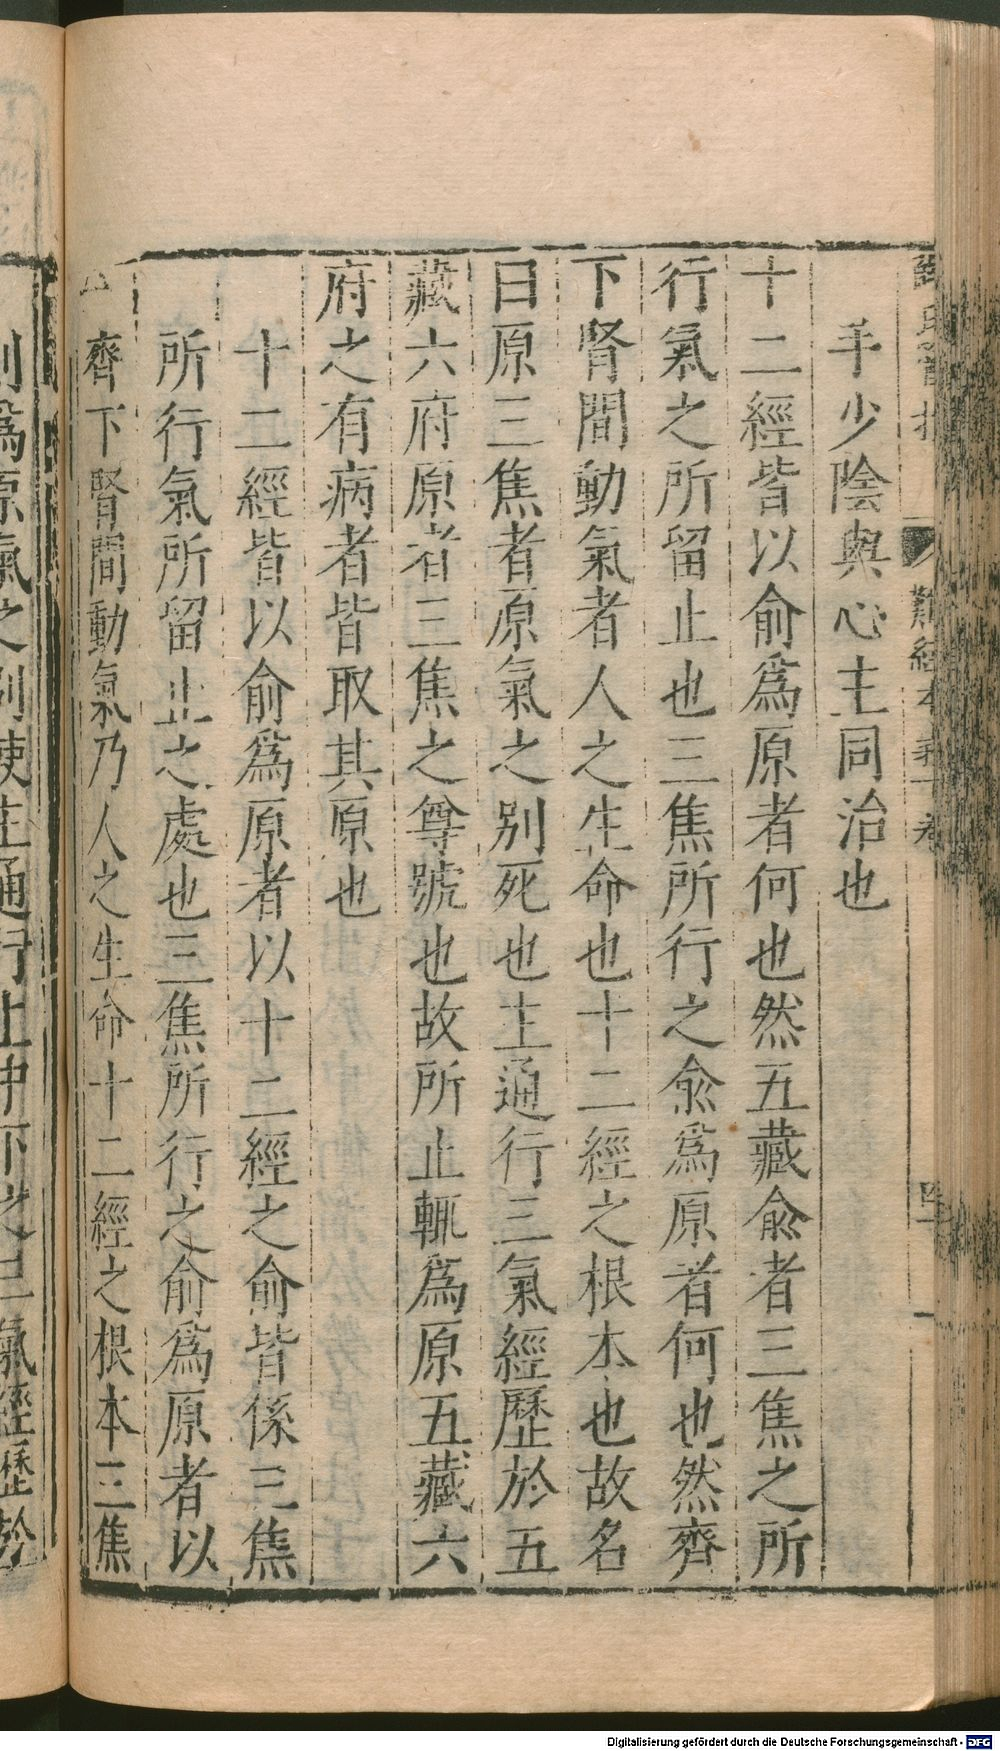 難經本義下卷
手少陰與心主同治也
十二經皆以俞爲原者何也然五藏俞者三焦之所
行氣之所留止也三焦所行之俞爲原者何也然齊
下腎間動氣者人之生命也十二經之根本也故名
曰原三焦者原氣之別死也主通行三氣經歷於五
藏六府原者三焦之尊號也故所止輒爲原五藏六
府之有病者皆取其原也
十二經皆以俞爲原者以十二經之俞皆係三焦
所行氣所留止之處也三焦所行之俞爲原者以
齊下腎間動氣乃人之生命十二經之根本三焦
則爲原氣之別使主通行上中下之三氣經歷於
Digitalisierung gefördert durch die Deutsche Forschungsgemeinschaft - DFG